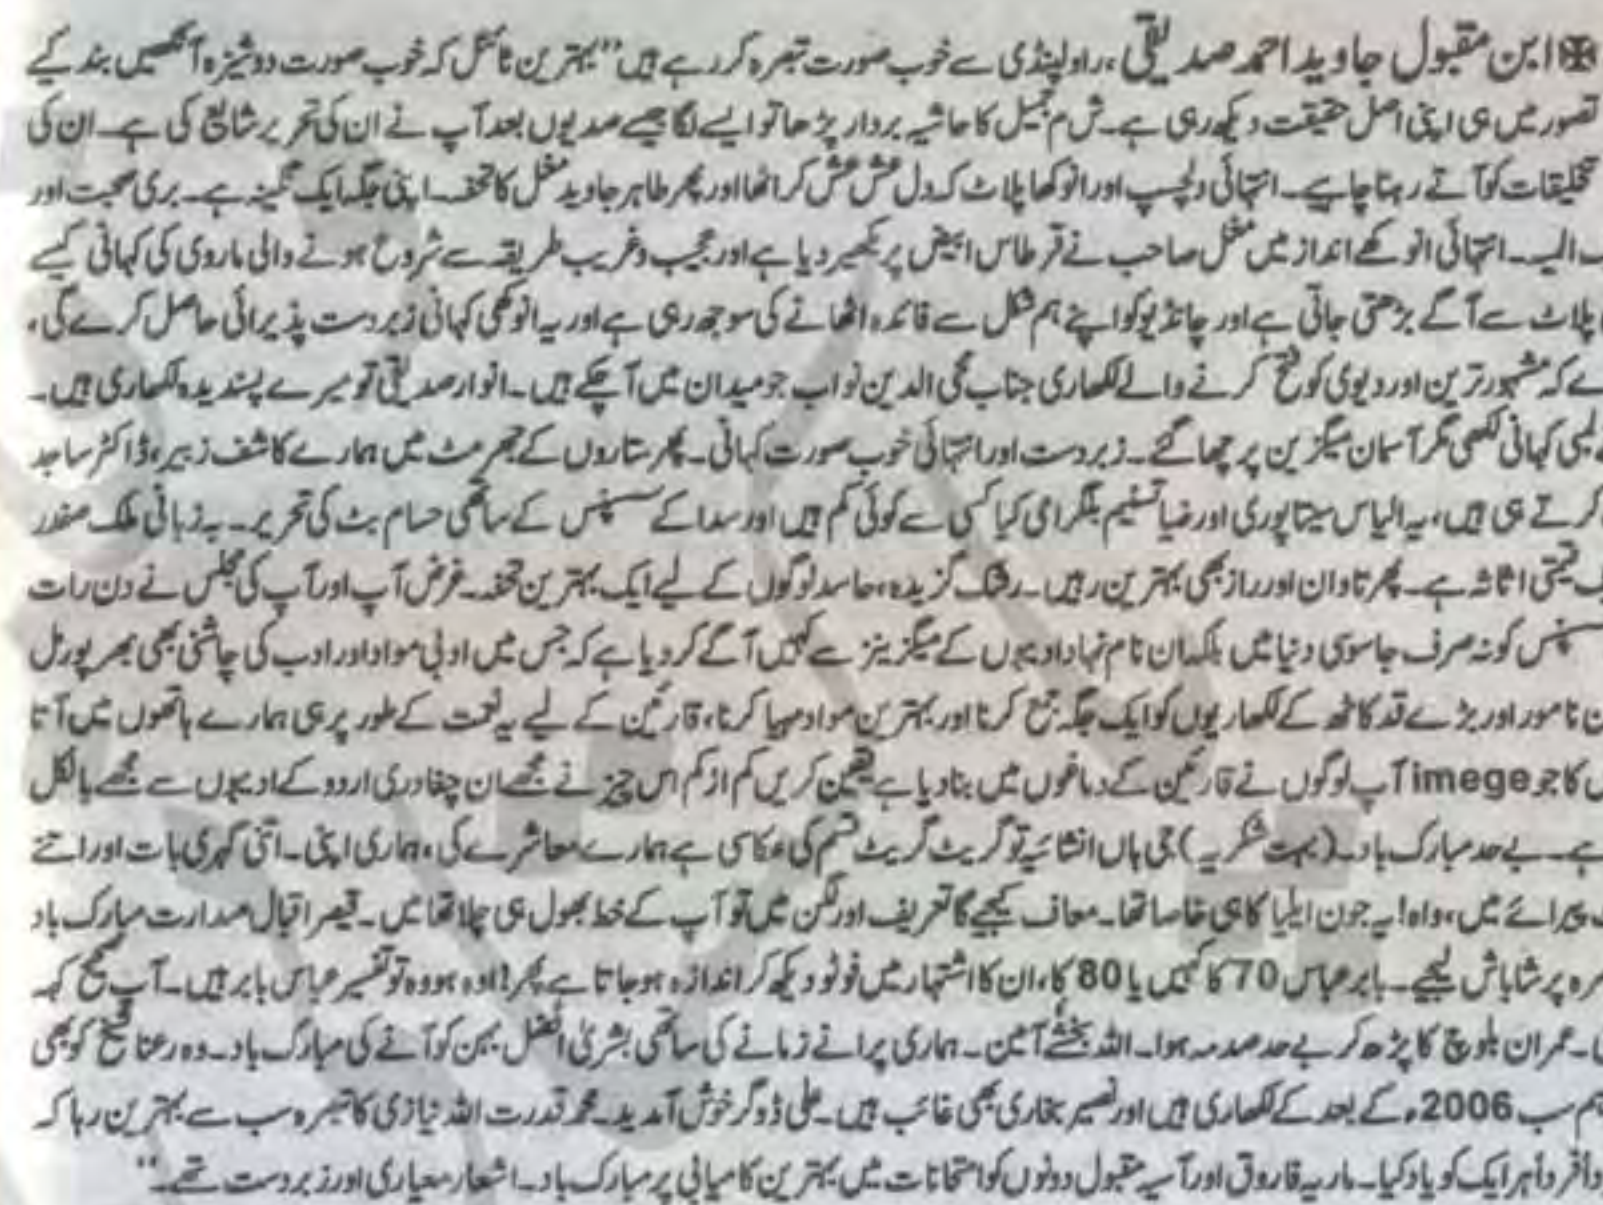 ابن مقبول جاوید احمد صدیقی، راولپنڈی سے خوب صورت تبصرہ کر رہے ہیں ”بہترین ٹائٹل کہ خوب صورت دوشیزہ آنکھیں بند کیے
تصور میں ہی اپنی اصل حقیقت دیکھ رہی ہے۔ ش م جمیل کا حاشیہ بردار پڑھا تو ایسے لگا جیسے صدیوں بعد آپ نے ان کی تحریر شائع کی ہے۔ ان کی
تخلیقات کو آتے رہنا چاہیے۔ انتہائی دلچسپ اور انوکھا پلاٹ کہ دل عش عش کر اٹھا اور پھر طاہر جاوید مغل کا تحفہ۔ اپنی جگہ ایک نگینہ ہے۔ بری صحبت اور
الیہ۔ انتہائی انوکھے انداز میں مغل صاحب نے قرطاس ابیض پر بکھیر دیا ہے اور عجیب و غریب طریقہ سے شروع ہونے والی ماروی کی کہانی کیسے
پلاٹ سے آگے بڑھتی جاتی ہے اور چانڈیو کو اپنے ہم شکل سے فائدہ اٹھانے کی سوجھ رہی ہے اور یہ انوکھی کہانی زبردست پذیرائی حاصل کرے گی،
کہ مشہور ترین اور دیوی کو فتح کرنے والے لکھاری جناب محی الدین نواب جو میدان میں آ چکے ہیں۔ انوار صدیقی تو میرے پسندیدہ لکھاری ہیں۔
لمبی کہانی لکھی مگر آسمان میگزین پر چھا گئے۔ زبردست اور انتہائی خوب صورت کہانی۔ پھر ستاروں کے جھرمٹ میں ہمارے کاشف زبیر، ڈاکٹر ساجد
کرتے ہی ہیں، یہ الیاس سیتاپوری اور ضیا تسنیم بلگرامی کیا کسی سے کوئی کم ہیں اور سدا کے سسپنس کے ساتھی حسام بٹ کی تحریر۔ بہ زبانی ملک صفدر
قیمتی اثاثہ ہے۔ پھر تاوان اور راز بھی بہترین رہیں۔ رشک گزیدہ، حاسد لوگوں کے لیے ایک بہترین تحفہ۔ غرض آپ اور آپ کی مجلس نے دن رات
سسپنس کو نہ صرف جاسوسی دنیا میں بلکہ ان نام نہاد ادیبوں کے میگزینز سے کہیں آگے کر دیا ہے کہ جس میں ادبی مواد اور ادب کی چاشنی بھی بھرپور مل
نامور اور بڑے قد کاٹھ کے لکھاریوں کو ایک جگہ جمع کرنا اور بہترین مواد مہیا کرنا، قارئین کے لیے یہ نعمت کے طور پر ہی ہمارے ہاتھوں میں آتا
کا جو imege آپ لوگوں نے قارئین کے دماغوں میں بنا دیا ہے یقین کریں کم از کم اس چیز نے مجھے ان چغادری اردو کے ادیبوں سے مجھے بالکل
ہے۔ بے حد مبارک باد۔ (بہت شکریہ) جی ہاں انشائیہ تو گریٹ گریٹ قسم کی عکاسی ہے ہمارے معاشرے کی، ہماری اپنی۔ اتنی گہری بات اور اتنے
پیرائے میں، واہ! یہ جون ایلیا کا ہی خاصا تھا۔ معاف کیجیے گا تعریف اور لگن میں تو آپ کے خط بھول ہی چلا تھا میں۔ قیصر اقبال صدارت مبارک باد
پر شاباش لیجیے۔ بابر عباس 70 کا کہیں یا 80 کا، ان کا اشتہار میں فوٹو دیکھ کر اندازہ ہو جاتا ہے پھر! اوہ ہو وہ تو تفسیر عباس بابر ہیں۔ آپ صحیح کہہ
۔ عمران بلوچ کا پڑھ کر بے حد صدمہ ہوا۔ اللہ بخشے آمین۔ ہماری پرانے زمانے کی ساتھی بشریٰ افضل بہن کو آنے کی مبارک باد۔ وہ رعنا شیخ کو بھی
ہم سب 2006ء کے بعد کے لکھاری ہیں اور نصیر بخاری بھی غائب ہیں۔ علی ڈوگر خوش آمدید۔ محمد قدرت اللہ نیازی کا تبصرہ سب سے بہترین رہا کہ
فرداً ہر ایک کو یاد کیا۔ ماریہ فاروق اور آسیہ مقبول دونوں کو امتحانات میں بہترین کامیابی پر مبارک باد۔ اشعار معیاری اور زبردست تھے۔“